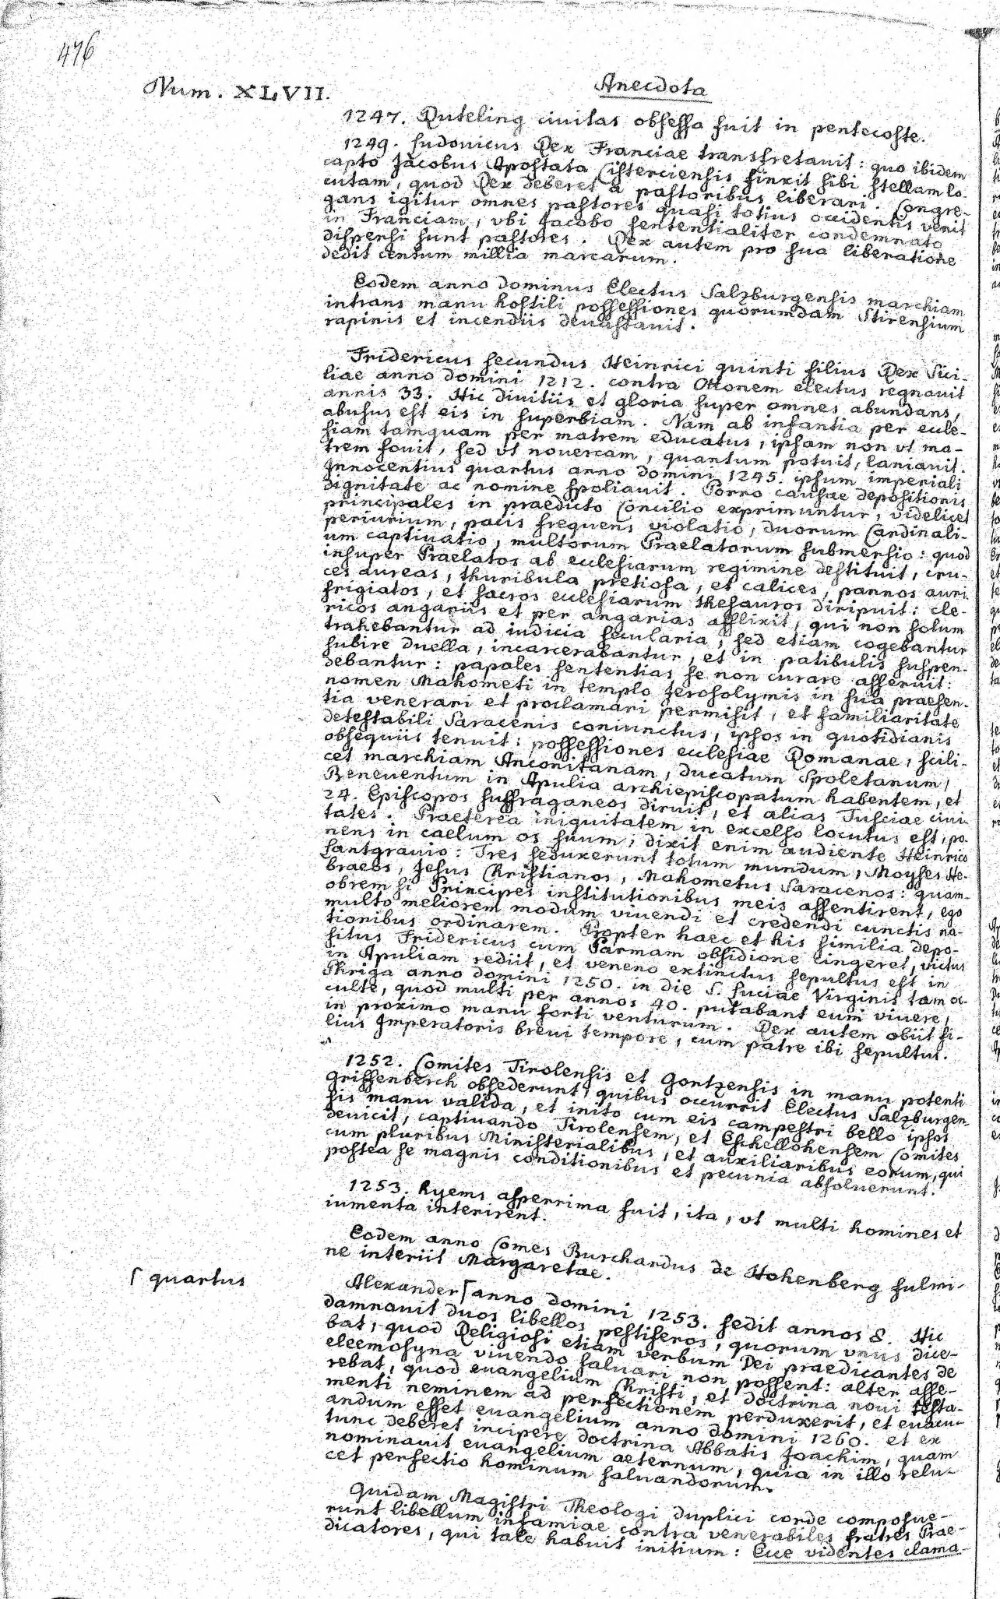 476
Num. XLVII.
Anecdota
1247. Ruteling civitas obsessa fuit in pentecoste.
1249. Ludovicus Rex Franciae transfretavit: quo ibidem
capto Jacobus Apostata Cisterciensis finxit sibi stellam lo-
cutam, quod Rex deberet a pastoribus liberari. Congre-
gans igitur omnes pastores quasi totius occidentis venit
in Franciam, vbi Jacobo sententialiter condemnato
dispersi sunt pastores. Rex autem pro sua liberatione
dedit centum millia marcarum.
Eodem anno dominus Electus Salzburgensis marchiam
intrans manu hostili possessiones quorumdam Stirensium
rapinis et incendiis devastavit.
Fridericus secundus Heinrici quinti filius Rex Sici-
liae anno domini 1212. contra Ottonem electus regnavit
annis 33. Hic divitiis et gloria super omnes abundans,
abusus est eis in superbiam. Nam ab infantia per eccle-
siam tamquam per matrem educatus, ipsam non vt ma-
trem fovit, sed vt novercam, quantum potuit, laniavit.
Innocentius quartus anno domini 1245. ipsum imperiali
dignitate ac nomine spoliavit. Porro causae depositionis
principales in praedicto Concilio exprimuntur, videlicet
periurium, pacis frequens violatio, duorum Cardinali-
um captivatio, multorum Praelatorum submersio: quod
insuper Praelatos ab ecclesiarum regimine destituit, cru-
ces aureas, thuribula pretiosa, et calices, pannos auri
frigiatos, et sacros ecclesiarum thesauros diripuit: cle-
ricos angariis et per angarias afflixit, qui non solum
trahebantur ad iudicia secularia, sed etiam cogebantur
subire duella, incarcerabantur, et in patibulis suspen-
debantur: papales sententias se non curare asseruit:
nomen Mahometi in templo Jerosolymis in sua praesen-
tia venerari et proclamari permisit, et familiaritate
detestabili Saracenis coniunctus, ipsos in quotidianis
obsequiis tenuit: possessiones ecclesiae Romanae, scili-
cet marchiam Anconitanam, ducatum Spoletanum,
Beneventum in Apulia archiepiscopatum habentem, et
24. Episcopos suffraganeos diruit, et alias Tusciae civi-
tates. Praeterea iniquitatem in excelso locutus est, po-
nens in caelum os suum, dixit enim audiente Heinrico
Lantgravio: Tres seduxerunt totum mundum, Moyses He-
braeos, Jesus Christianos, Mahometus Saracenos: quam-
obrem si Principes institutionibus meis assentirent, ego
multo meliorem modum vivendi et credendi cunctis na-
tionibus ordinarem. Propter haec et his similia depo-
situs Fridericus cum Parmam obsidione cingeret, victus
in Apuliam rediit, et veneno extinctus sepultus est in
Phrigia anno domini 1250. in die S. Luciae Virginis tam oc-
culte, quod multi per annos 40. putabant eum vivere,
in proximo manu forti venturum. Rex autem obiit fi-
lius Imperatoris brevi tempore, cum patre ibi sepultus.
1252. Comites Tirolensis et Gortzensis in manu potenti
Griffenberch obsederunt, quibus occurrit Electus Salzburgen-
sis manu valida, et inito cum eis campestri bello ipsos
devicit, captivando Tirolensem, et Eschellohensem Comites
cum pluribus Ministerialibus, et auxiliaribus eorum, qui
postea se magnis conditionibus et pecunia absolverunt.
1253. Hyems asperrima fuit, ita, vt multi homines et
iumenta interirent.
Eodem anno Comes Burchardus de Hohenberg fulmi-
ne interiit Margaretae.
Γ quartus
Alexander Γ anno domini 1253. sedit annos 8. Hic
damnavit duos libellos pestiferos, quorum vnus dice-
bat, quod Religiosi etiam verbum Dei praedicantes de
eleemosyna vivendo salvari non possent: alter asse-
rebat, quod evangelium Christi, et doctrina novi testa-
menti neminem ad perfectionem perduxerit, et evacu-
andum esset evangelium anno domini 1260. et ex
tunc deberet incipere doctrina Abbatis Joachim, quam
nominavit evangelium aeternum, quia in illo relu-
cet perfectio hominum salvandorum.
Quidam Magistri Theologi duplici corde composue-
runt libellum infamiae contra venerabiles fratres Prae-
dicatores, qui tale habuit initium: Ecce videntes clama-